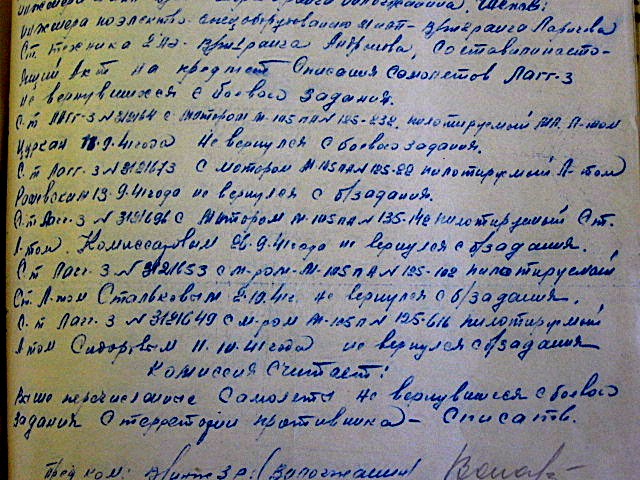 инженера поэлектро-спецоборудованию
Ст. техника Андреева, составили насто-
ящий Акт на предмет Описания самолетов Лагг-3
не вернувшихся с боевого задания.
С-т Лагг-3 N 3121164 с мотором М-105 ПА N 125-232. пилотируемый Л-том
Цуркан 9.41 года не вернулся с боевого задания.
С-т Лагг-3 N 3121673 с мотором М-105ПА N 125-22 пилотируемый Л-том
13.9.41 года не вернулся с б/задания.
С-т Лагг-3 N 3121696 с мотором М-105ПА N 135-142 пилотируемый Ст.
Л-том. Комиссаровым 26.9.41 года не вернулся с б/задания.
С-т Лагг-3 N 3121653 с м-ром-М-105ПА N 125-102 пилотируемый
Ст. Л-том Стальковым 2.10.41г. не вернулся с б/задания.
С-т Лагг-3 N 3121649 с м-ром М-105ПА N 125-616 пилотируемый
Л-том Сидоровым 11.10.41 года не вернулся с б/задания
Комиссия считает:
Выше перечисленные самолеты не вернувшиеся с боевого
задания с терретории противника - списать.
Пред ком: